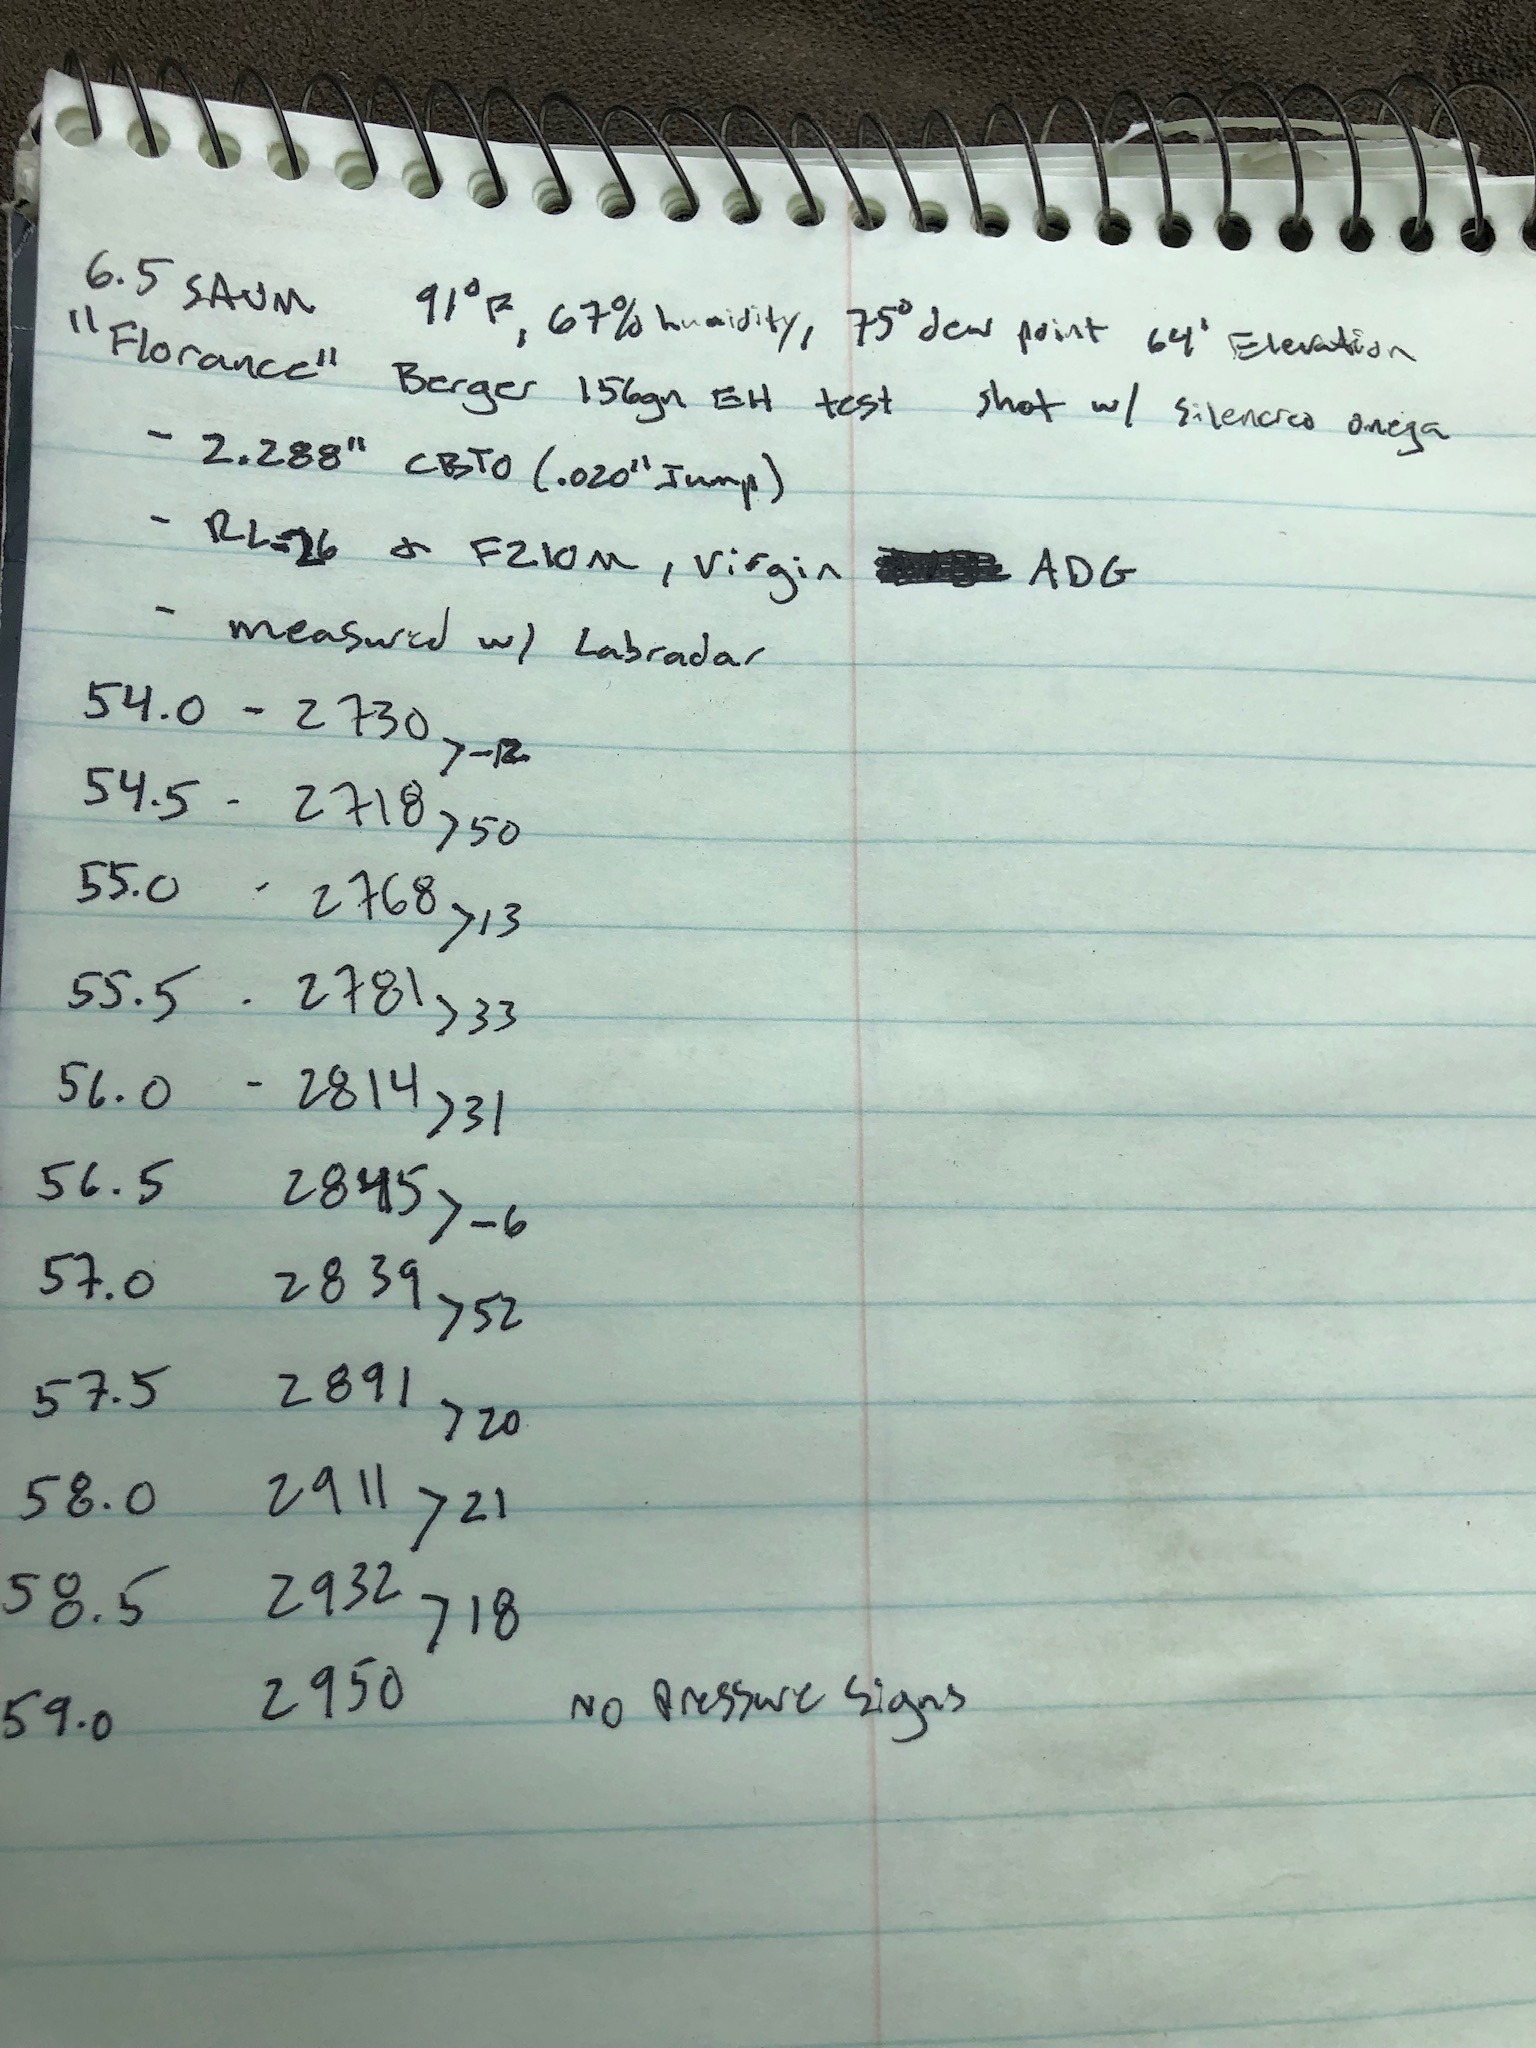 6.5 SAUM 91°F, 67% humidity, 75° dew point 64' Elevation
"Florance" Berger 156gn EH test shot w/ silencreo omega
- 2.288" CBTO (.020" Jump)
- RL-26 & F210M, virgin ADG
- measured w/ Labradar
54.0 - 2730 >-12
54.5 - 2718 >50
55.0 - 2768 >13
55.5 - 2781 >33
56.0 - 2814 >31
56.5 2845 >-6
57.0 2839 >52
57.5 2891 >20
58.0 2911 >21
58.5 2932 >18
59.0 2950 NO Pressure Signs